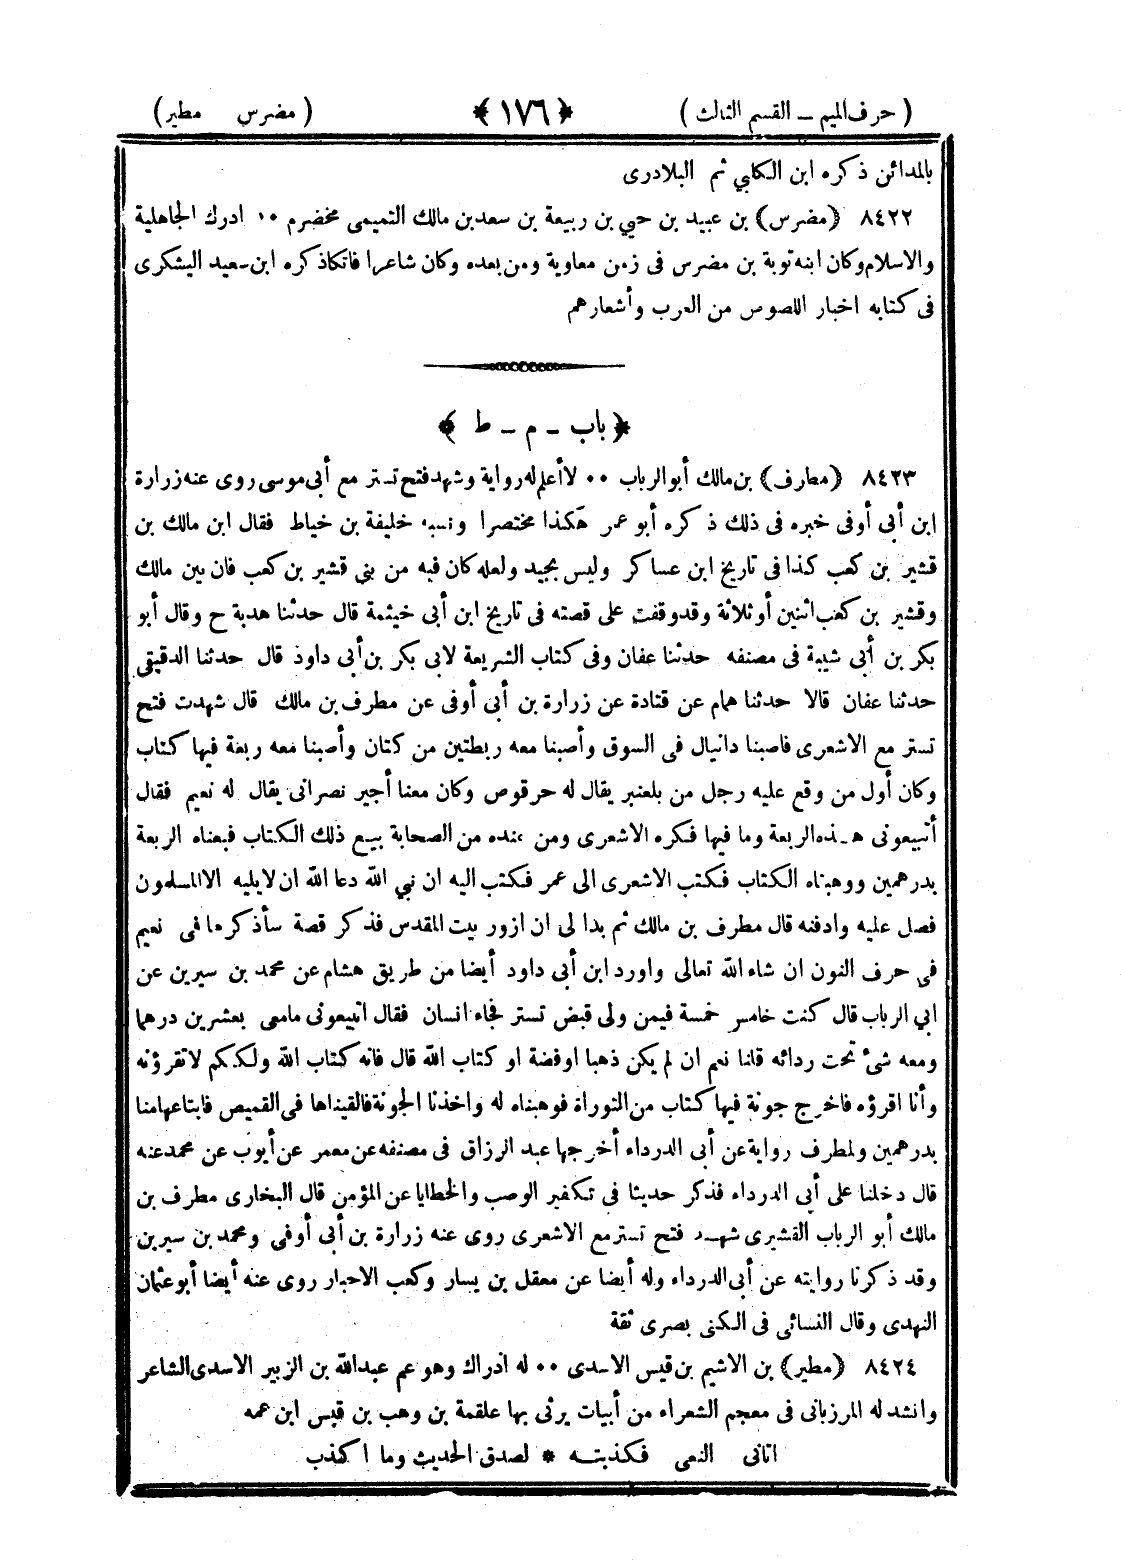 ( حرف الميم ـ القسم الثالث ) ﴿ ١٧٦ ﴾ ( مضرس مطير )
بالمدائن ذكره ابن الكلبي ثم البلاذرى
٨٤٢٢ ﴿ مضرس ﴾ بن عبيد بن حيي بن ربيعة بن سعد بن مالك التميمى مخضرم ٠٠ ادرك الجاهلية
والاسلام وكان ابنه توبة بن مضرس فى زمن معاوية ومن بعده وكان شاعرا فاتكا ذكره ابن سعيد اليشكرى
فى كتابه اخبار اللصوص من العرب وأشعارهم
﴿ باب ـ م ـ ط ﴾
٨٤٢٣ ﴿ معارف ﴾ بن مالك أبو الرباب ٠٠ لا أعلم له رواية وشهد فتح تستر مع أبى موسى روى عنه زرارة
ابن أبى أوفى خبره فى ذلك ذكره أبو عمر هكذا مختصرا ونسبه خليفة بن خياط فقال ابن مالك بن
قشير بن كعب كذا فى تاريخ ابن عساكر وليس بجيد ولعله كان فيه من بنى قشير بن كعب فان بين مالك
وقشير بن كعب اثنين أو ثلاثة وقد وقفت على قصته فى تاريخ ابن أبى خيثمة قال حدثنا هدبة ح وقال أبو
بكر بن أبى شيبة فى مصنفه حدثنا عفان وفى كتاب الشريعة لابى بكر بن أبى داود قال حدثنا الدقيقى
حدثنا عفان قالا حدثنا همام عن قتادة عن زرارة بن أبى أوفى عن مطرف بن مالك قال شهدت فتح
تستر مع الاشعرى فاصبنا دانيال فى السوق وأصبنا معه ربطتين من كتان وأصبنا معه ربعة فيها كتاب
وكان أول من وقع عليه رجل من بلعنبر يقال له حرقوص وكان معنا أجير نصرانى يقال له نعيم فقال
أتبيعونى هـذه الربعة وما فيها فكره الاشعرى ومن عنده من الصحابة بيع ذلك الكتاب فبعناه الربعة
بدرهمين ووهبناه الكتاب فكتب الاشعرى الى عمر فكتب اليه ان نبي الله دعا الله ان لا يليه الا المسلمون
فصل عليه وادفنه قال مطرف بن مالك ثم بدا لى ان ازور بيت المقدس فذكر قصة سأذكرها فى نعيم
فى حرف النون ان شاء الله تعالى واورد ابن أبى داود أيضا من طريق هشام عن محمد بن سيرين عن
ابي الرباب قال كنت خامس خمسة فيمن ولى قبض تستر فجاء انسان فقال اتبيعونى مامعى بعشرين درهما
ومعه شئ تحت ردائه قلنا نعم ان لم يكن ذهبا او فضة او كتاب الله قال فانه كتاب الله ولكنكم لا تقرؤنه
وأنا اقرؤه فاخرج جونة فيها كتاب من التوراة فوهبناه له واخذنا الجونة فالقيناها فى القميص فابتاعها منا
بدرهمين ولمطرف رواية عن أبى الدرداء أخرجها عبد الرزاق فى مصنفه عن معمر عن أيوب عن محمد عنه
قال دخلنا على أبى الدرداء فذكر حديثا فى تكفير الوصب والخطايا عن المؤمن قال البخارى مطرف بن
مالك أبو الرباب القشيرى شهـد فتح تستر مع الاشعرى روى عنه زرارة بن أبى أوفى ومحمد بن سيرين
وقد ذكرنا روايته عن أبى الدرداء وله أيضا عن معقل بن يسار وكعب الاحبار روى عنه أيضا أبو عثمان
النهدى وقال النسائى فى الكنى بصرى ثقة
٨٤٢٤ ﴿ مطير ﴾ بن الاشيم بن قيس الاسدى ٠٠ له ادراك وهو عم عبد الله بن الزبير الاسدى الشاعر
وانشد له المرزبانى فى معجم الشعراء من أبيات يرثى بها علقمة بن وهب بن قيس ابن عمه
اتانى النعى فكذبتـه * لصدق الحديث وما اكذب